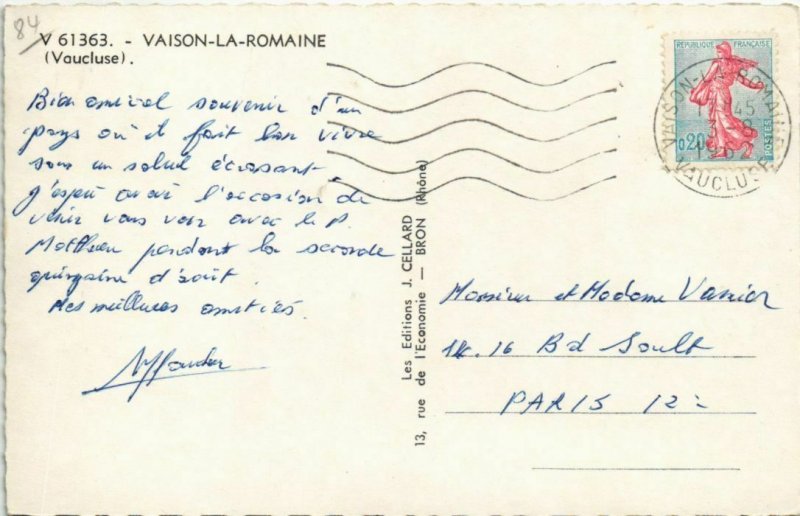 84
V 61363. - VAISON-LA-ROMAINE
(Vaucluse).
Bien amical souvenir d'un
pays où il fait bon vivre
sous un soleil écrasant
J'espère avoir l'occasion de
venir vous voir avec le P.
Matthieu pendant la seconde
quinzaine d'août.
Mes meilleures amitiés.
Les Editions J. CELLARD
13, rue de l'Economie — BRON (Rhône)
REPUBLIQUE FRANÇAISE
0,20
POSTES
VAISON-LA-ROMAINE
45
VAUCLUSE
Monsieur et Madame Vanier
16 Bd Soult
PARIS 12